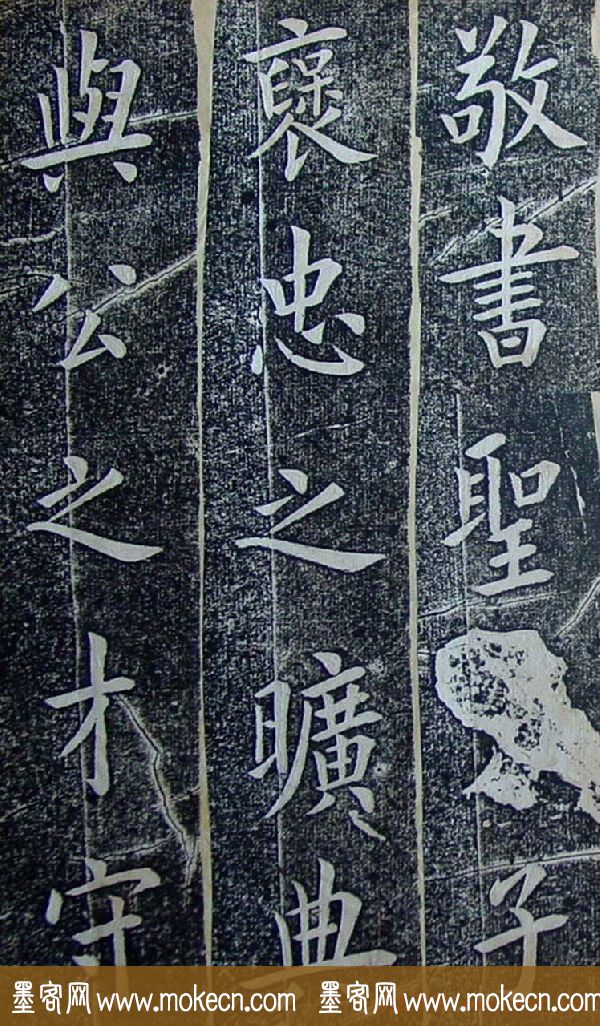 敬書聖子
襃忠之曠典
與公之才守
墨客网 www.mokecn.com 墨客网 www.mokecn.com